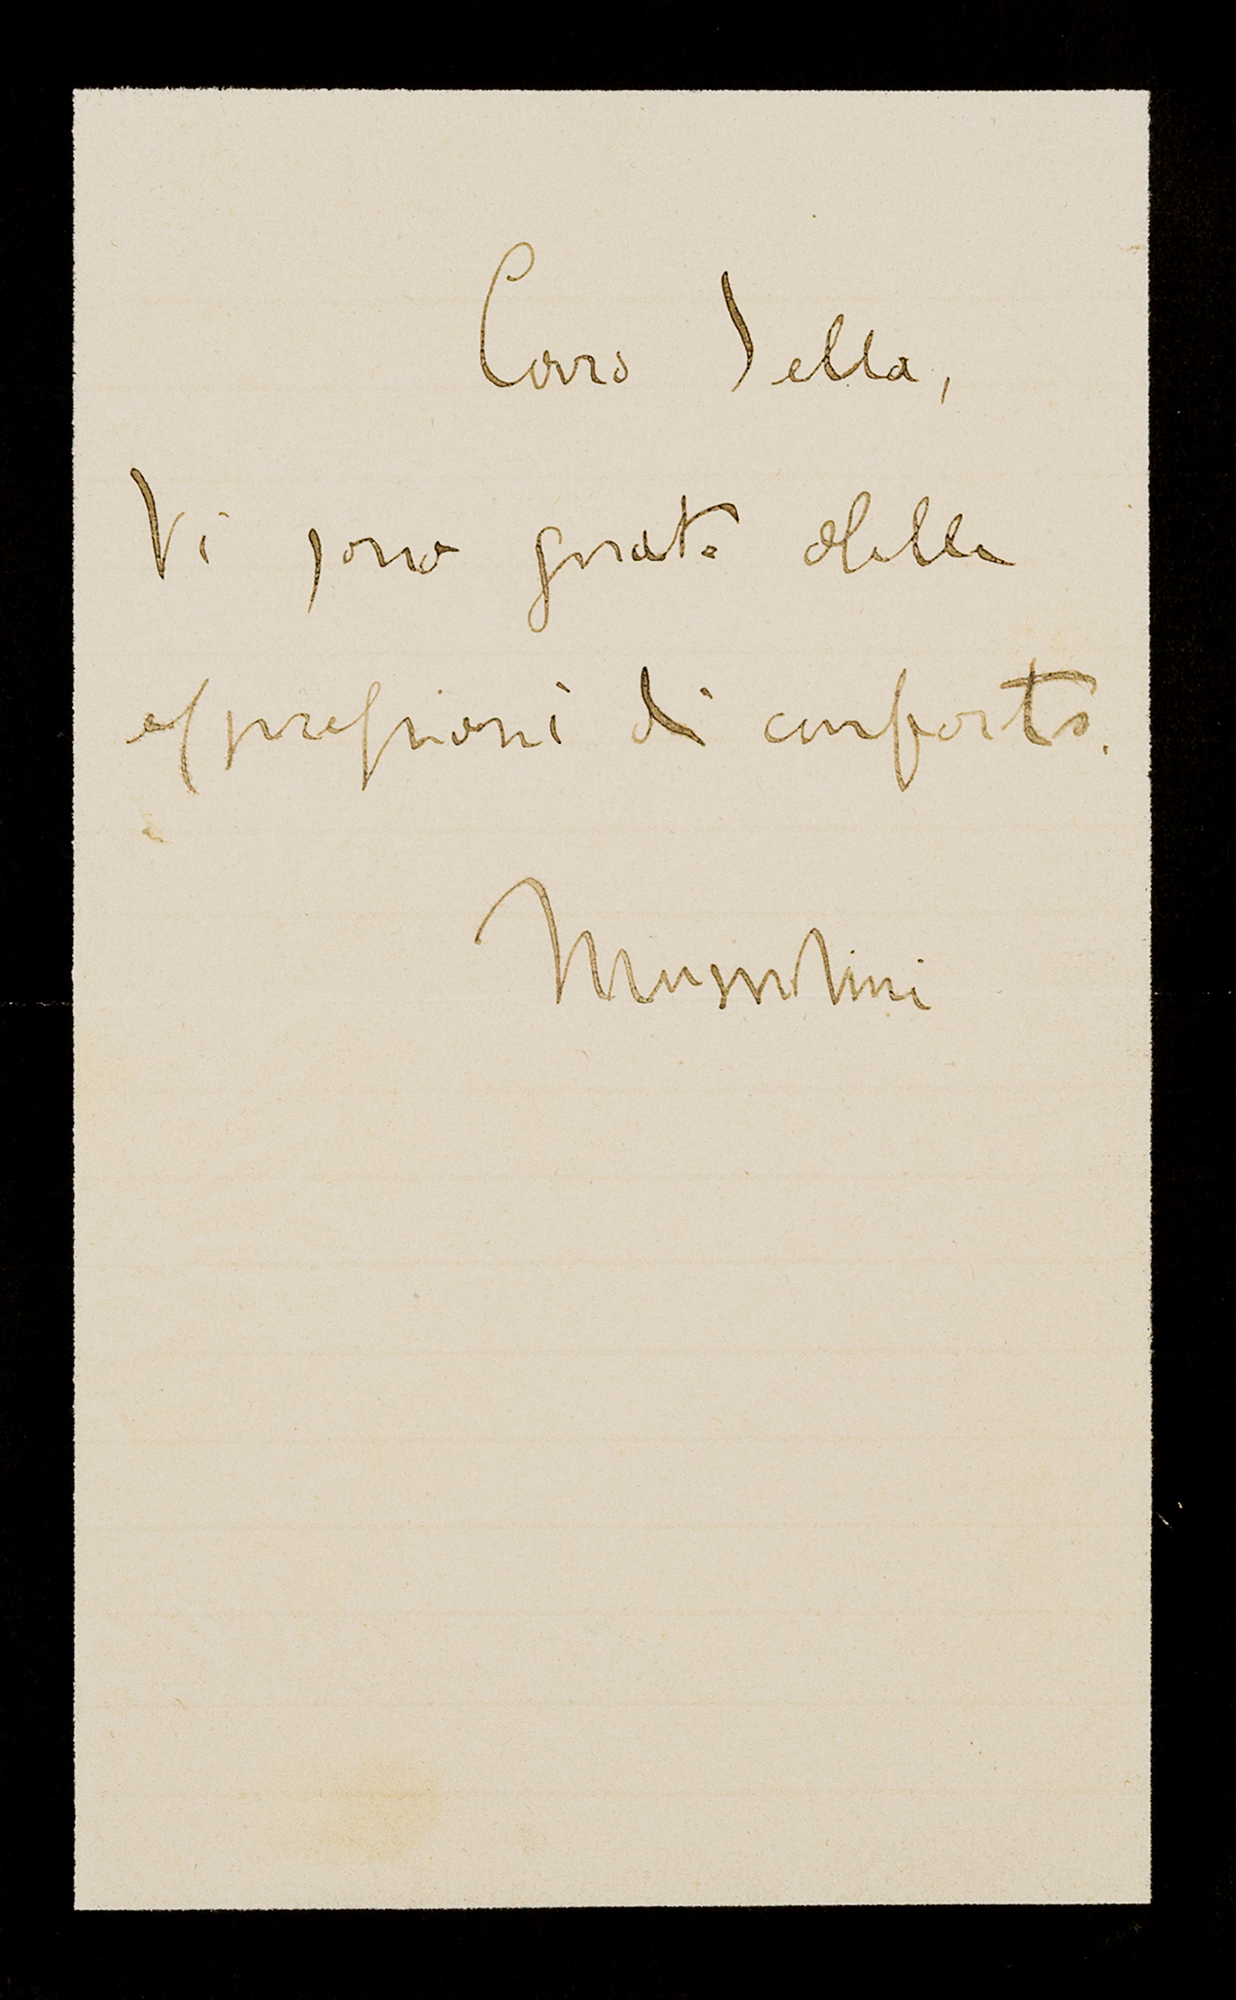 Caro Sella,
Vi sono grato delle
espressioni di conforto.
Mussolini